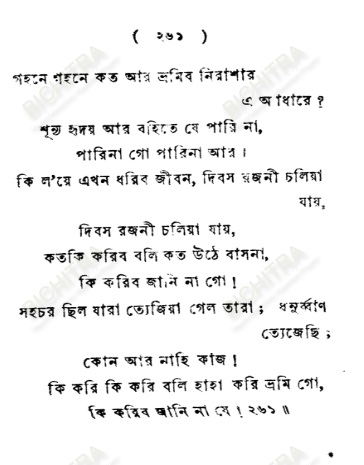 ( ২৬১ )
গহনে গহনে কত আর ভ্রমিব নিরাশার
এ আঁধারে ?
শূন্য হৃদয় আর বহিতে যে পারি না,
পারিনা গো পারিনা আর ।
কি ল'য়ে এখন ধরিব জীবন, দিবস রজনী চলিয়া
যায়,
দিবস রজনী চলিয়া যায়,
কতকি করিব বলি কত উঠে বাসনা,
কি করিব জানি না গো !
সহচর ছিল যারা ত্যেজিয়া গেল তারা ; ধনুর্ব্বাণ
ত্যেজেছি ;
কোন আর নাহি কাজ !
কি করি কি করি বলি হাহা করি ভ্রমি গো,
কি করিব জানি না যে ! ২৬১ ॥
BICHITRA
BICHITRA
BICHITRA
BICHITRA